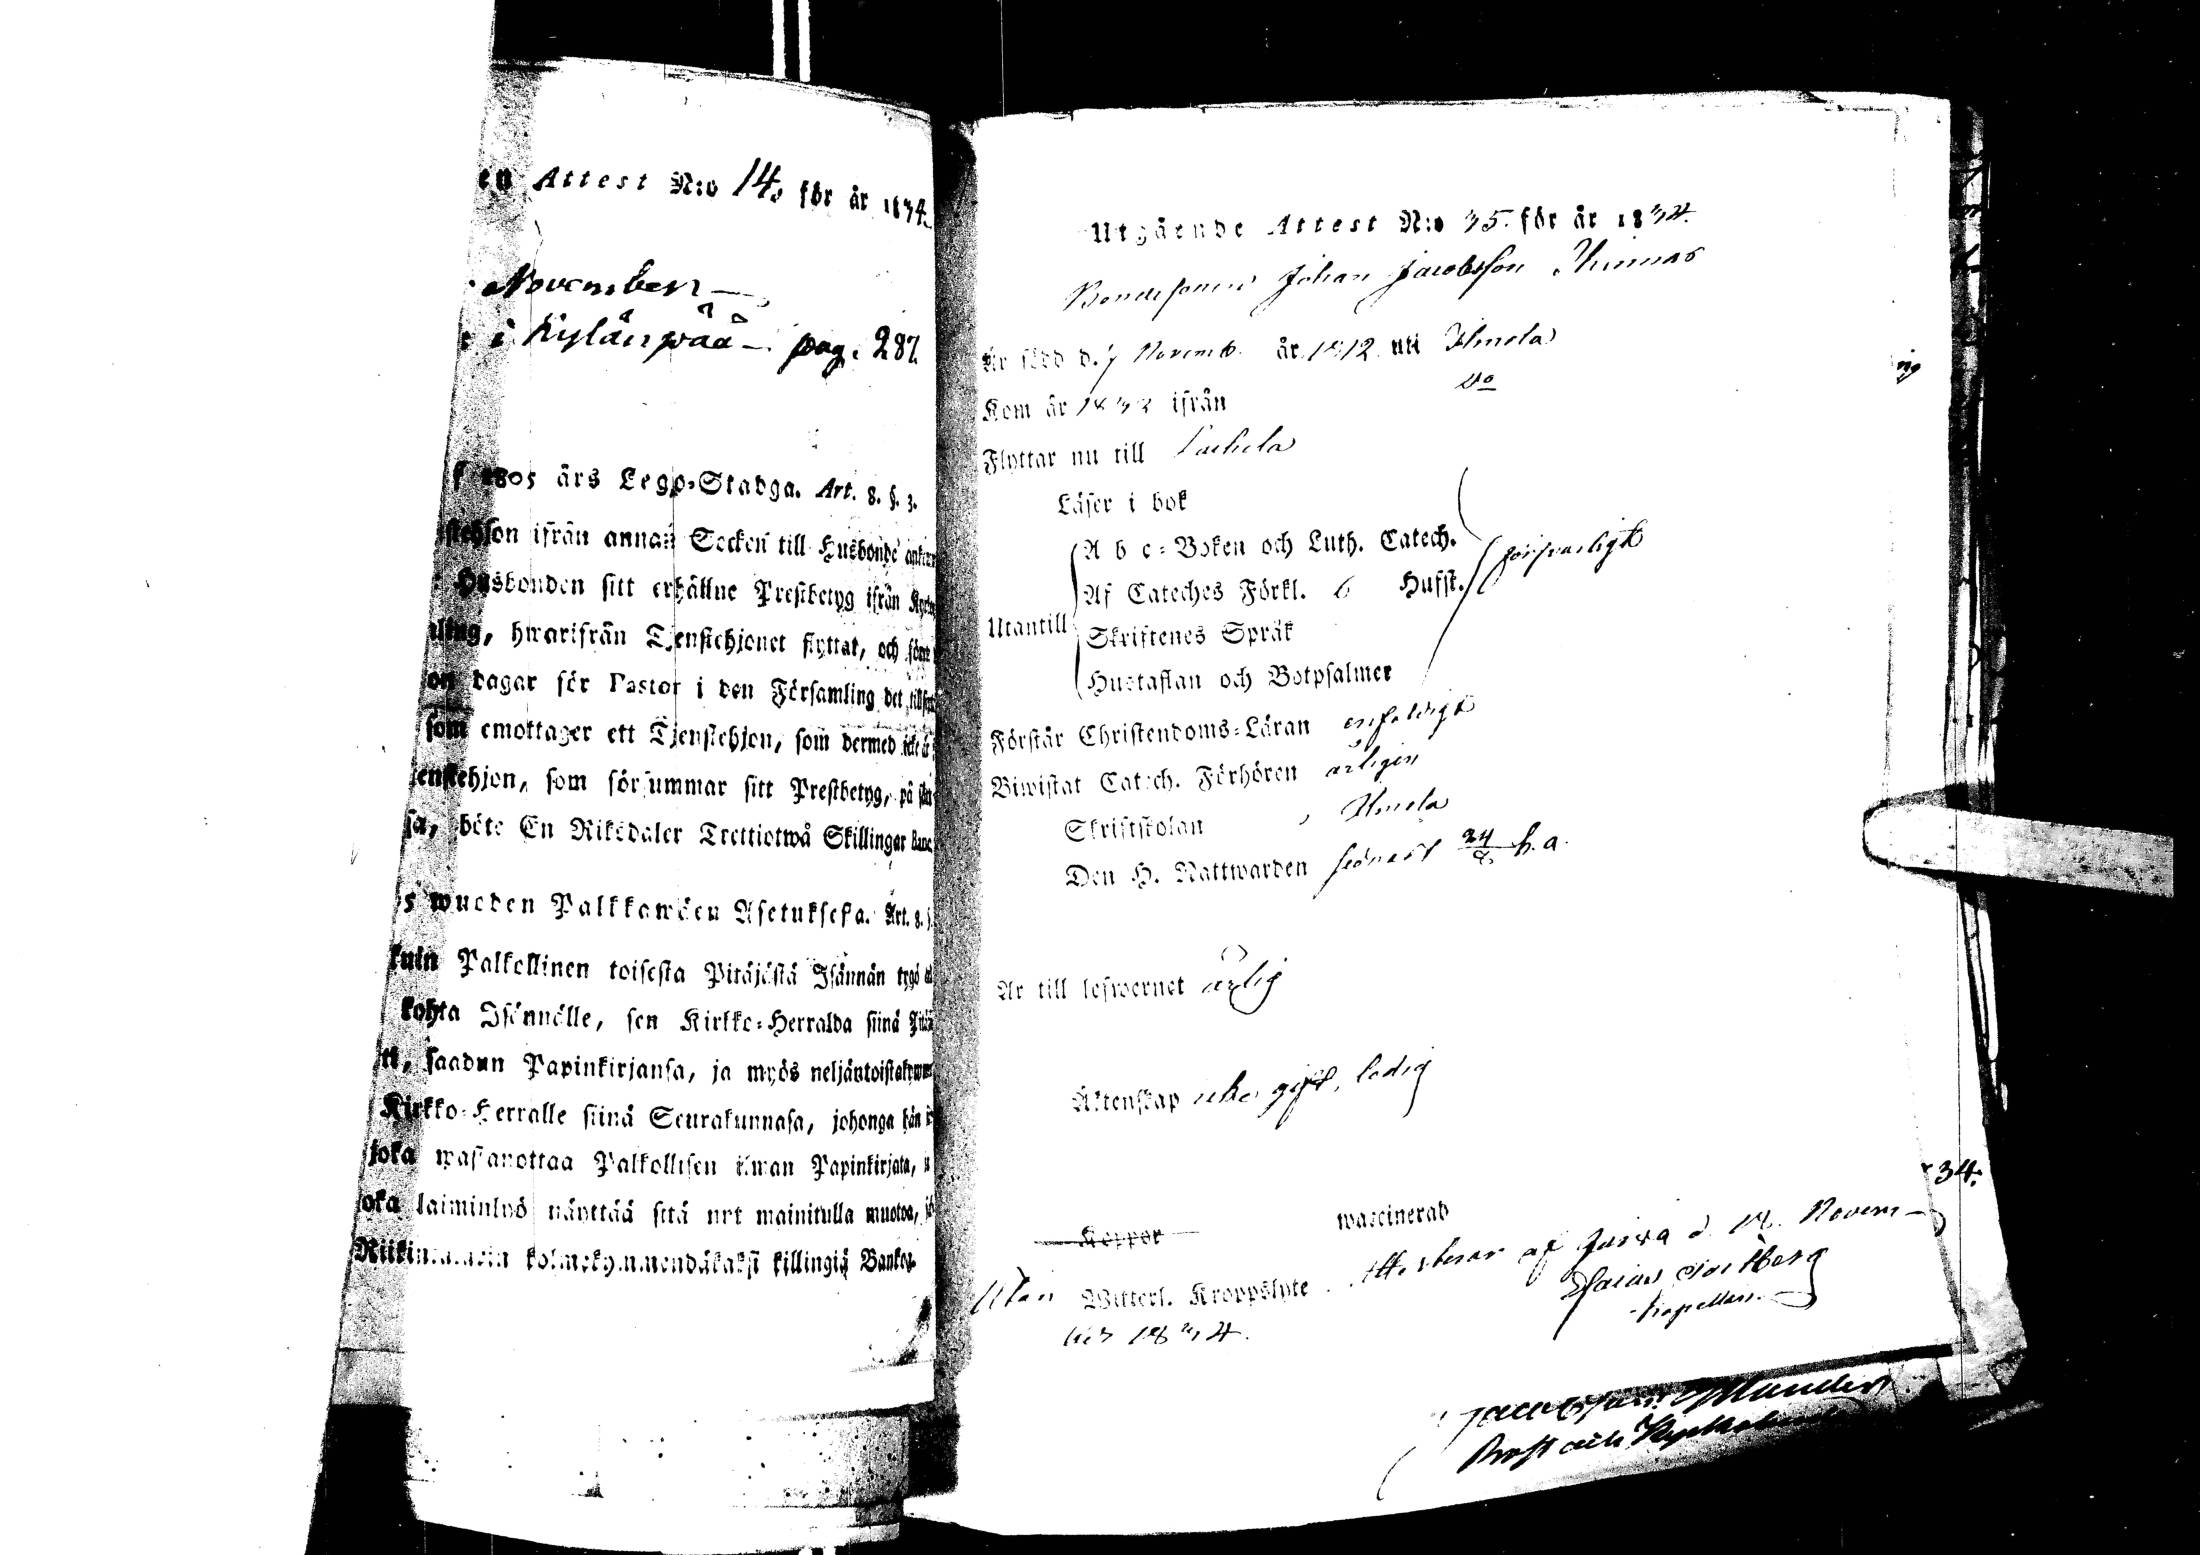 en Attest N:o 14, för år 1834.
November
i Kylänpää pag. 287.
1805 års Lego-Stadga. Art. 8. §. 3.
stehjon ifrån annan Socken till Husbonde
Husbonden sitt erhållne Prestbetyg ifrån
hwarifrån Tjenstehjonet flyttat, och
dagar för Pastor i den Församling det
som emottager ett Tjenstehjon, som dermed icke är
enstehjon, som försummar sitt Prestbetyg, på
sa, böte En Riksdaler Trettiotwå Skillingar Banc
5 wuoden Palkkawäen Asetuksesa. Art. 8. §.
kuin Palkollinen toisesta Pitäjästä Isännän tygö
kohta Isännälle, sen Kirkko-Herralda siinä
ti, saadun Papinkirjansa, ja myös neljäntoistakymm
Kirkko-Herralle siinä Seurakunnasa, johonga hän
joka wastanottaa Palkollisen ilman Papinkirjata,
oka laiminlyö näyttää sitä nyt mainitulla muotoa,
kolmekymmendäkaksi killingiä Bankos.
Utgående Attest N:o 35. för år 1834.
Bondesonen Johan Jacobsson
Är född d. 7 Novemb. år 1812 uti Ilmola
Kom år 1832 ifrån do
Flyttar nu till Laihela
Läser i bok
A b c-Boken och Luth. Catech.
Af Cateches Förkl. 6 Hufst. försvarligt
Utantill
Skriftenes Språk
Hustaflan och Botpsalmer
Förstår Christendoms-Läran enfaldigt
Biwistat Catech. Förhören årligen
Skriftskolan Ilmola
Den H. Nattwarden senast 24/8 h.a.
Är till lefwernet ärlig
Äktenskap icke gift, ledig
34.
Koppor waccinerad
Utan Witterl. Kroppslyte Attesterar af Jurwa d. 18. Novem-
ber 1834.
Kapellan.
Prost och Kyrkoherde